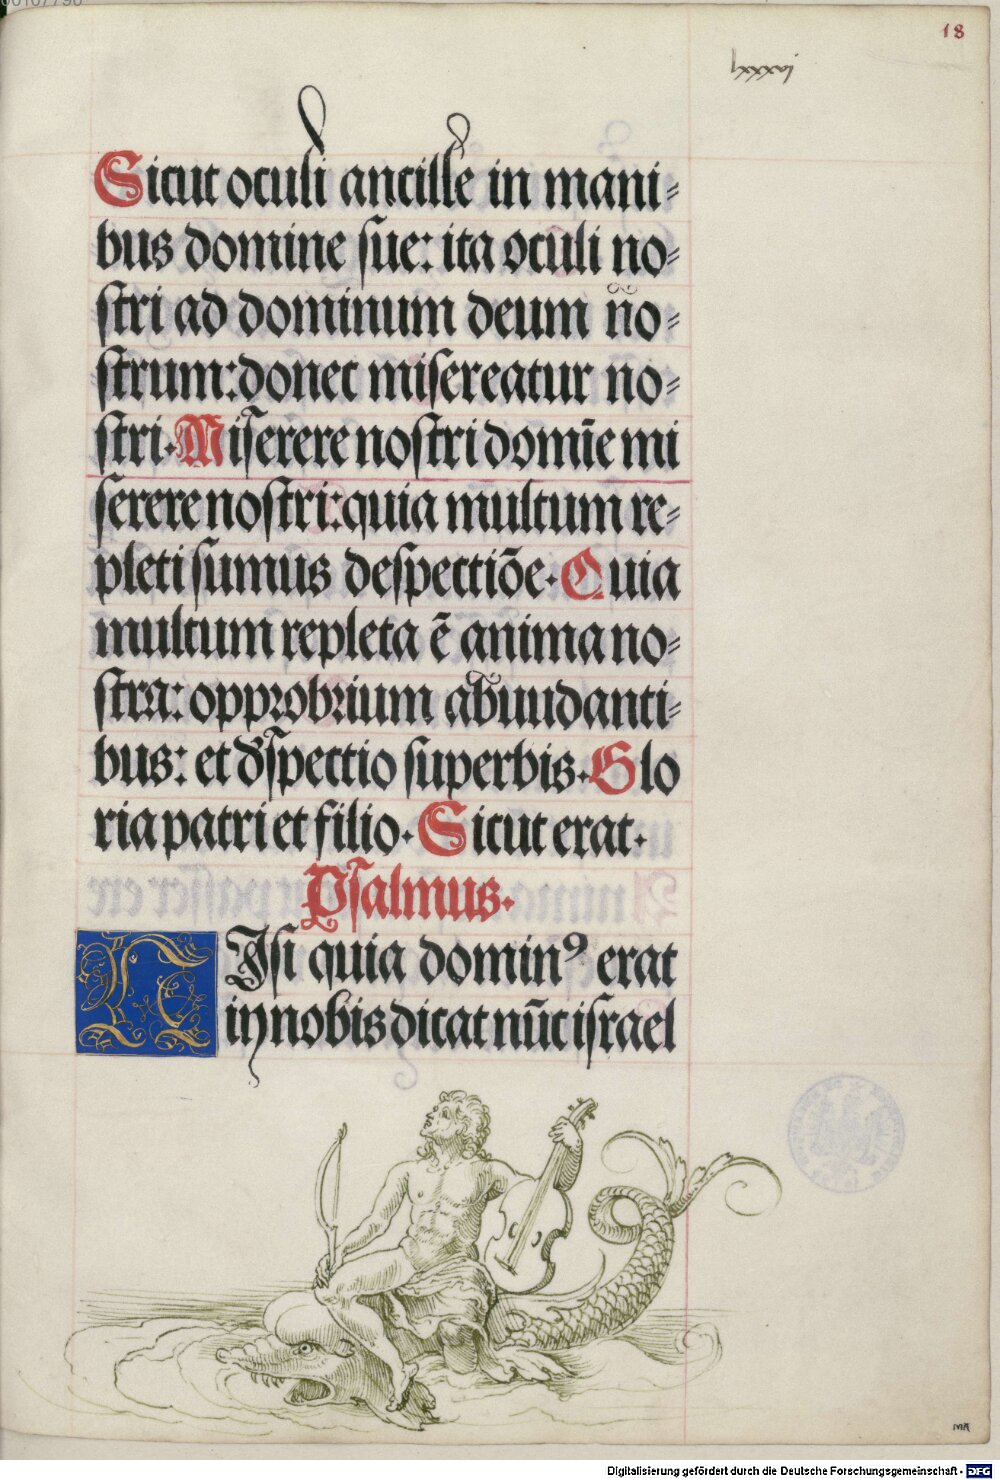 00107790
18
lxxxvj
Sicut oculi ancille in mani=
bus domine sue: ita oculi no=
stri ad dominum deum no=
strum: donec misereatur no=
stri. Miserere nostri domīe mi
serere nostri: quia multum re=
pleti sumus despectiōe. Quia
multum repleta ē anima no=
stra: opprobrium abuudanti=
bus: et d̄spectio superbis. Glo
ria patri et filio. Sicut erat.
Psalmus.
NIsi quia dominꝰ erat
in nobis dicat nūc israel
MA
Digitalisierung gefördert durch die Deutsche Forschungsgemeinschaft - DFG